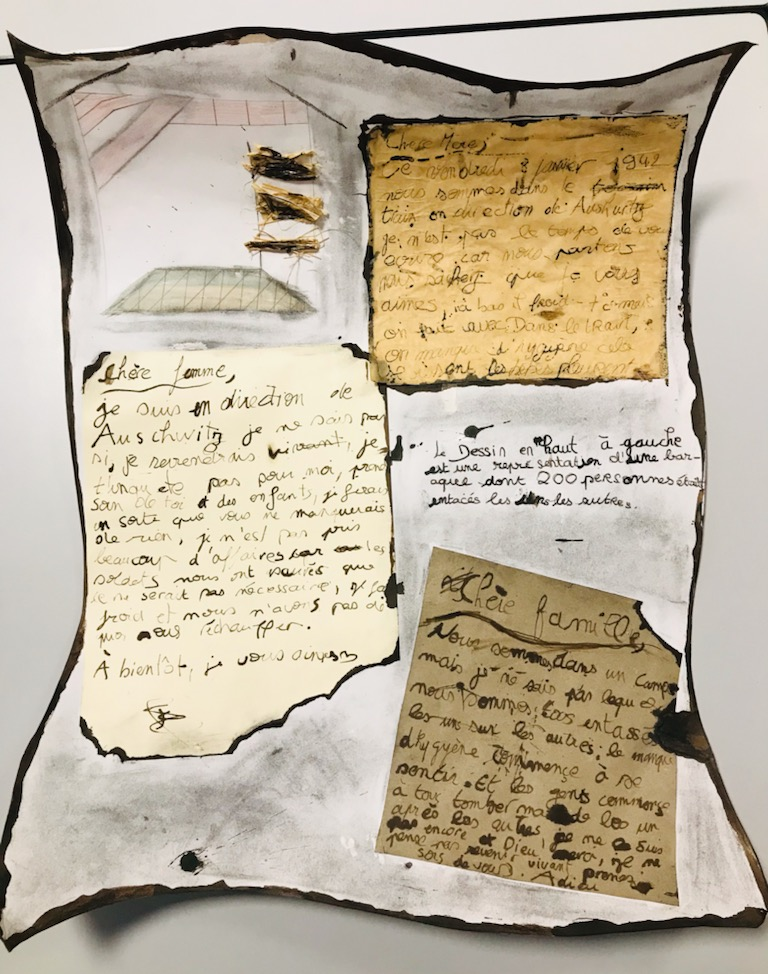 Chère Mère,
Le vendredi 8 janvier 1942
nous sommes dans le
train en direction de Aushwitz
je n'est pas le temps de vous
écrire car nous partons
mais sachez que je vous
aimes, là bas il froid
on fait avec. Dans le train,
on manque d'hygiène cela
se sent les
Chère femme,
je suis en direction de
Auschwitz je ne sais pas
si, je reviendrais vivant, je
t'inquète pas pour moi, prend
soin de toi et des enfants, je ferais
en sorte que vous ne manquerais
de rien, je n'est pas pris
beaucoup d'affaires car les
soldats nous ont que
ce ne serait pas nécessaire, il fai
froid et nous n'avons pas de
quoi nous réchauffer.
À bientôt, je vous aimes
Le Dessin en haut à gauche
est une représentation d'une bar-
aque dont 200 personnes étaient
entacés les uns les autres.
Chère famille,
Nous sommes dans un camp
mais je ne sais pas lequel
nous sommes tous entassé
les un sur les autres, le manque
d'hygyène commence à se
sentir. Et les gents commence
à tous tomber malade les un
après les autres, je ne le suis
pas encore et Dieu merci, je ne
pense pas revenir vivant, prenez
soin de vous. Adieu